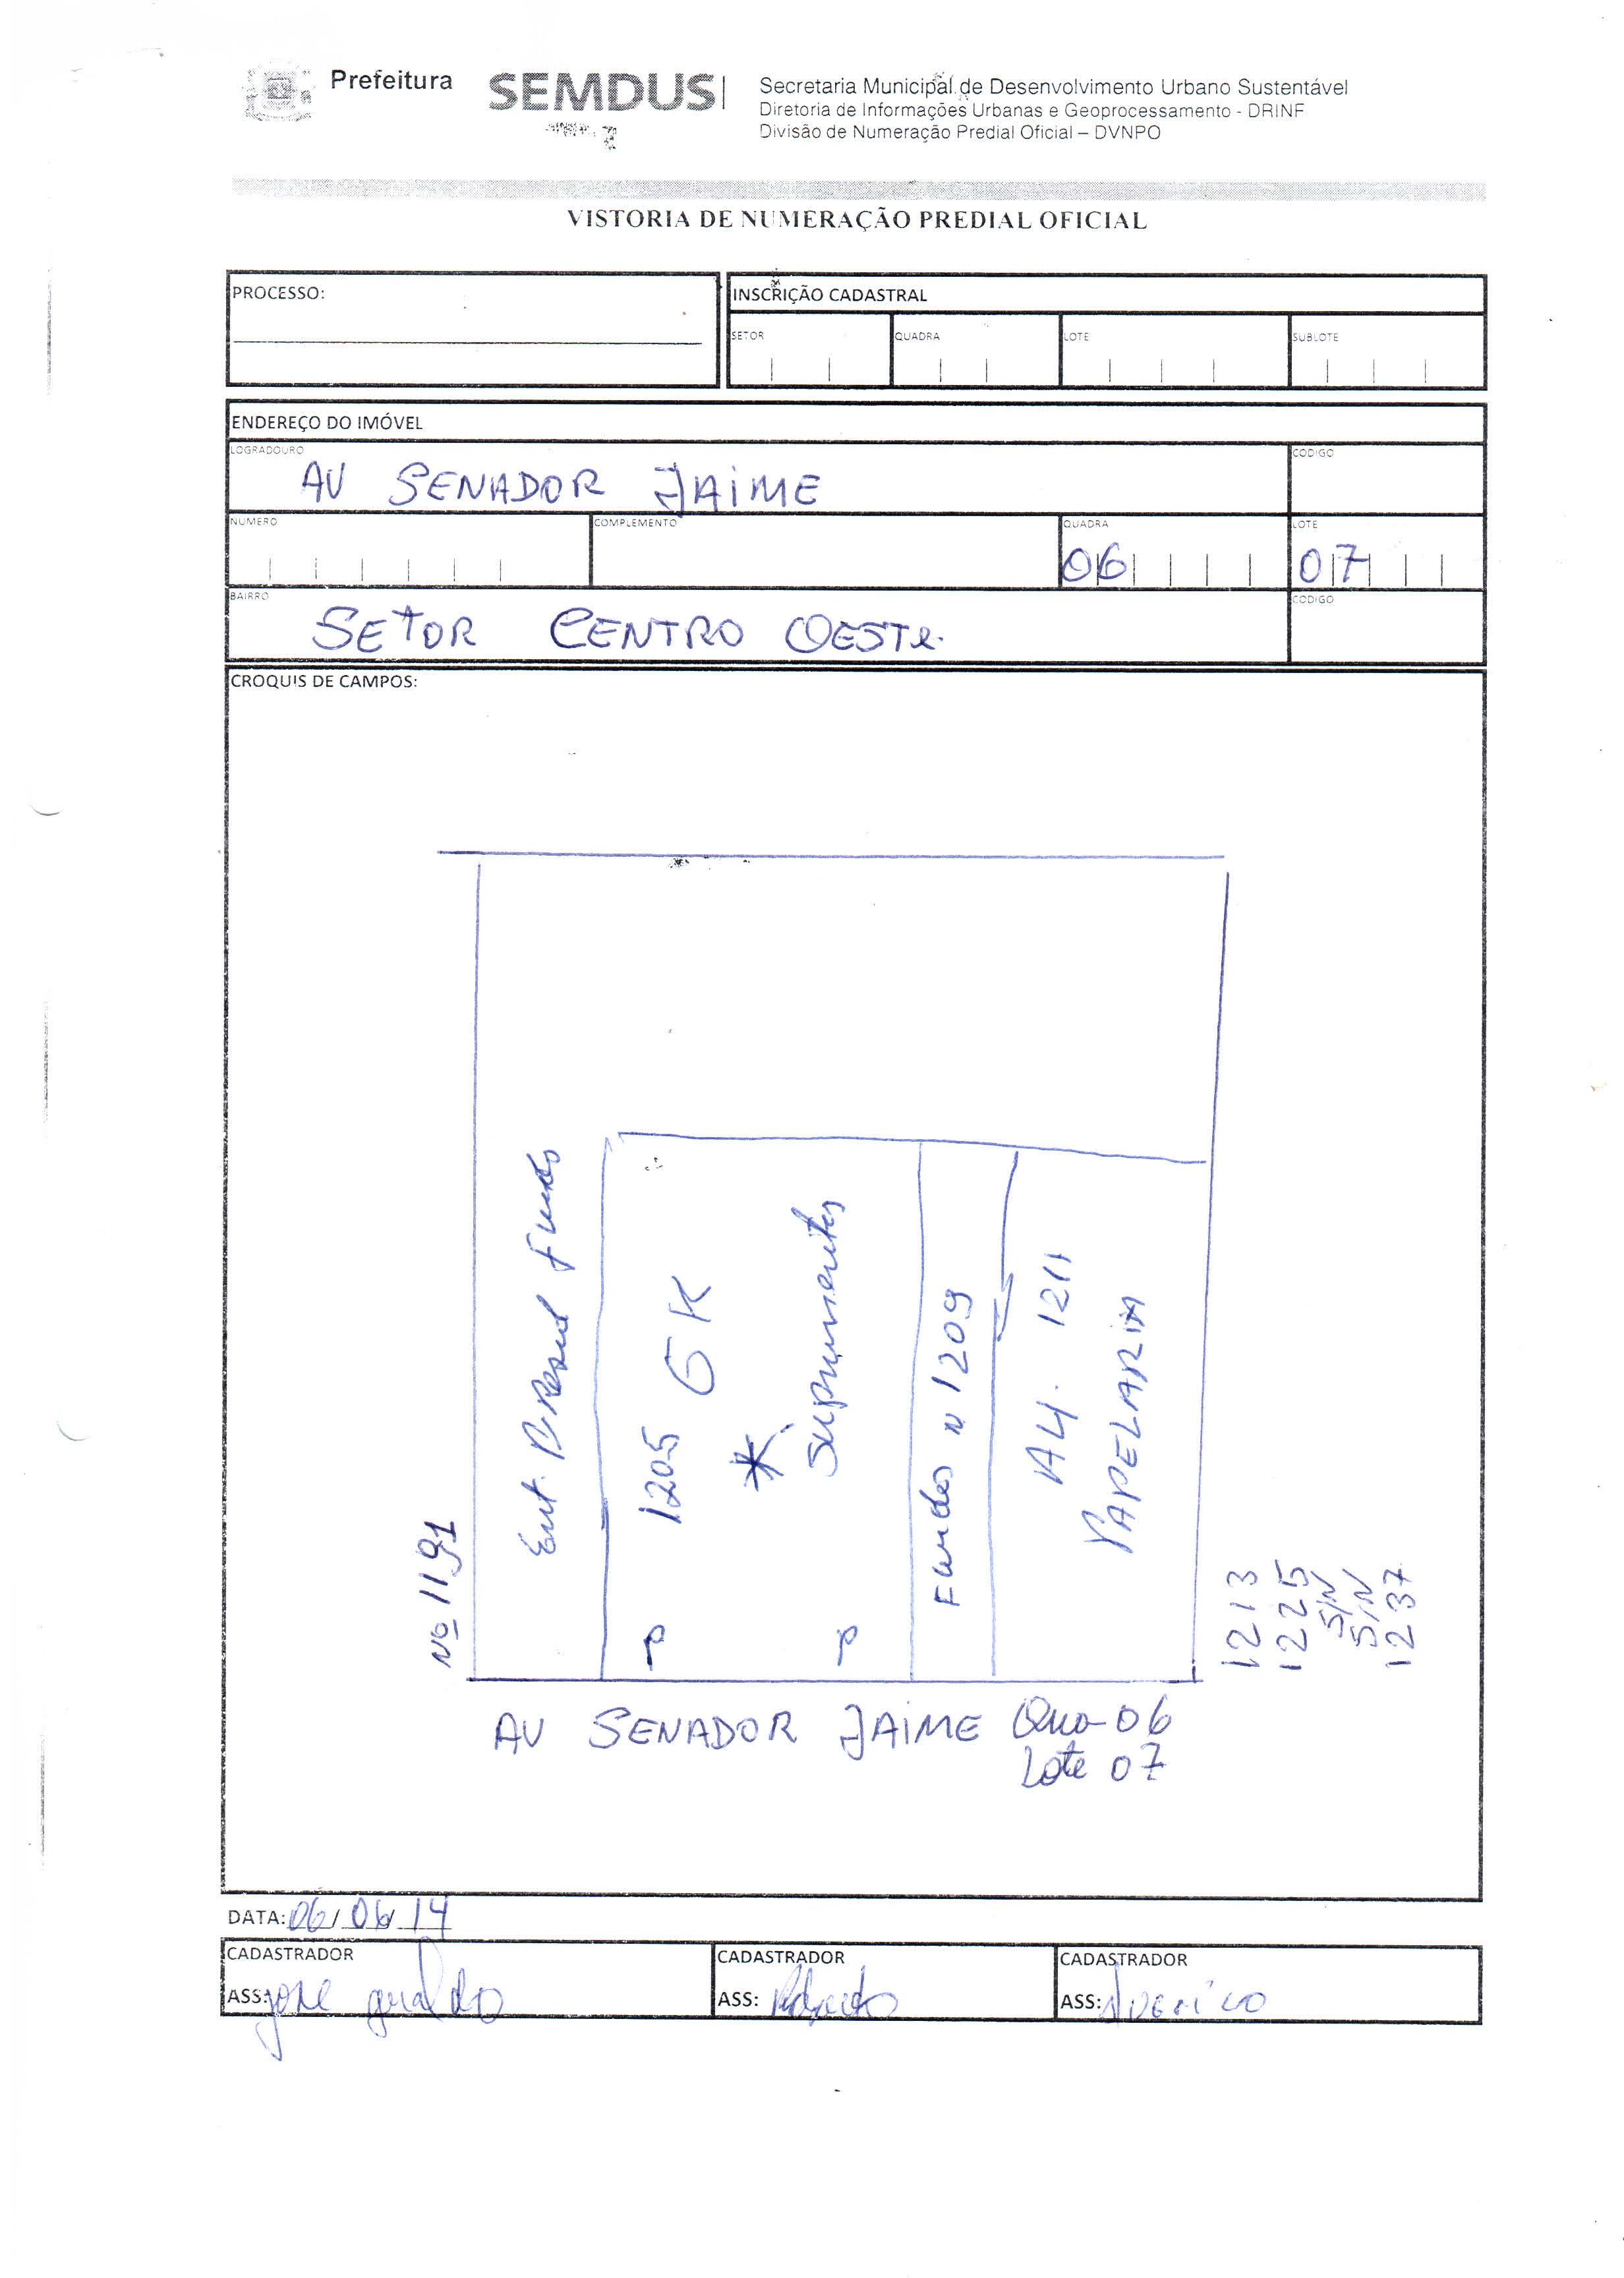 Prefeitura
SEMDUS
Secretaria Municipal de Desenvolvimento Urbano Sustentável
Diretoria de Informações Urbanas e Geoprocessamento - DRINF
Divisão de Numeração Predial Oficial – DVNPO
VISTORIA DE NUMERAÇÃO PREDIAL OFICIAL
PROCESSO:
INSCRIÇÃO CADASTRAL
SETOR QUADRA LOTE SUBLOTE
ENDEREÇO DO IMÓVEL
LOGRADOURO CODIGO
AV SENADOR JAIME
NUMERO COMPLEMENTO QUADRA LOTE
06 07
BAIRRO CODIGO
SETOR CENTRO OESTE
CROQUIS DE CAMPOS:
Nº 1191
Ent. Fundos
1205 GK
Suprimentos
P
P
Fundos n 1209
A4. 1211
PAPELARIA
1213
1225
S/N
S/N
1237
AV SENADOR JAIME Qua-06
Lote 07
DATA: 06/06/14
CADASTRADOR CADASTRADOR CADASTRADOR
ASS: jose geraldo ASS: ASS: